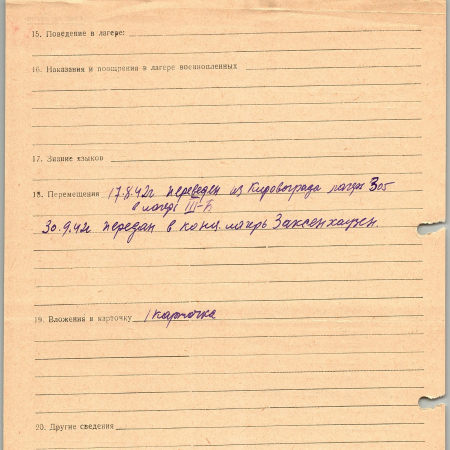 15. Поведение в лагере:
16. Наказания и поощрения в лагере военнопленных
17. Знание языков
18. Перемещения 17.8.42г переведен из Кировограда лагеря 305
в лагерь III-А
30.9.42г передан в конц. лагерь Заксенхаузен.
19. Вложения в карточку 1 карточка
20. Другие сведения